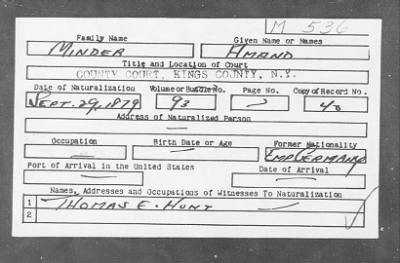 M 536
Family Name Given Name or Names
MINDER AMAND
Title and Location of Court
COUNTY COURT, KINGS COUNTY, N.Y.
Date of Naturalization Volume or Bundle No. Page No. Copy of Record No.
SEPT. 29, 1879 93 40
Address of Naturalized Person
—
Occupation Birth Date or Age Former Nationality
— — EMP GERMANY
Port of Arrival in the United States Date of Arrival
— —
Names, Addresses and Occupations of Witnesses To Naturalization
1 THOMAS E. HUNT —
2